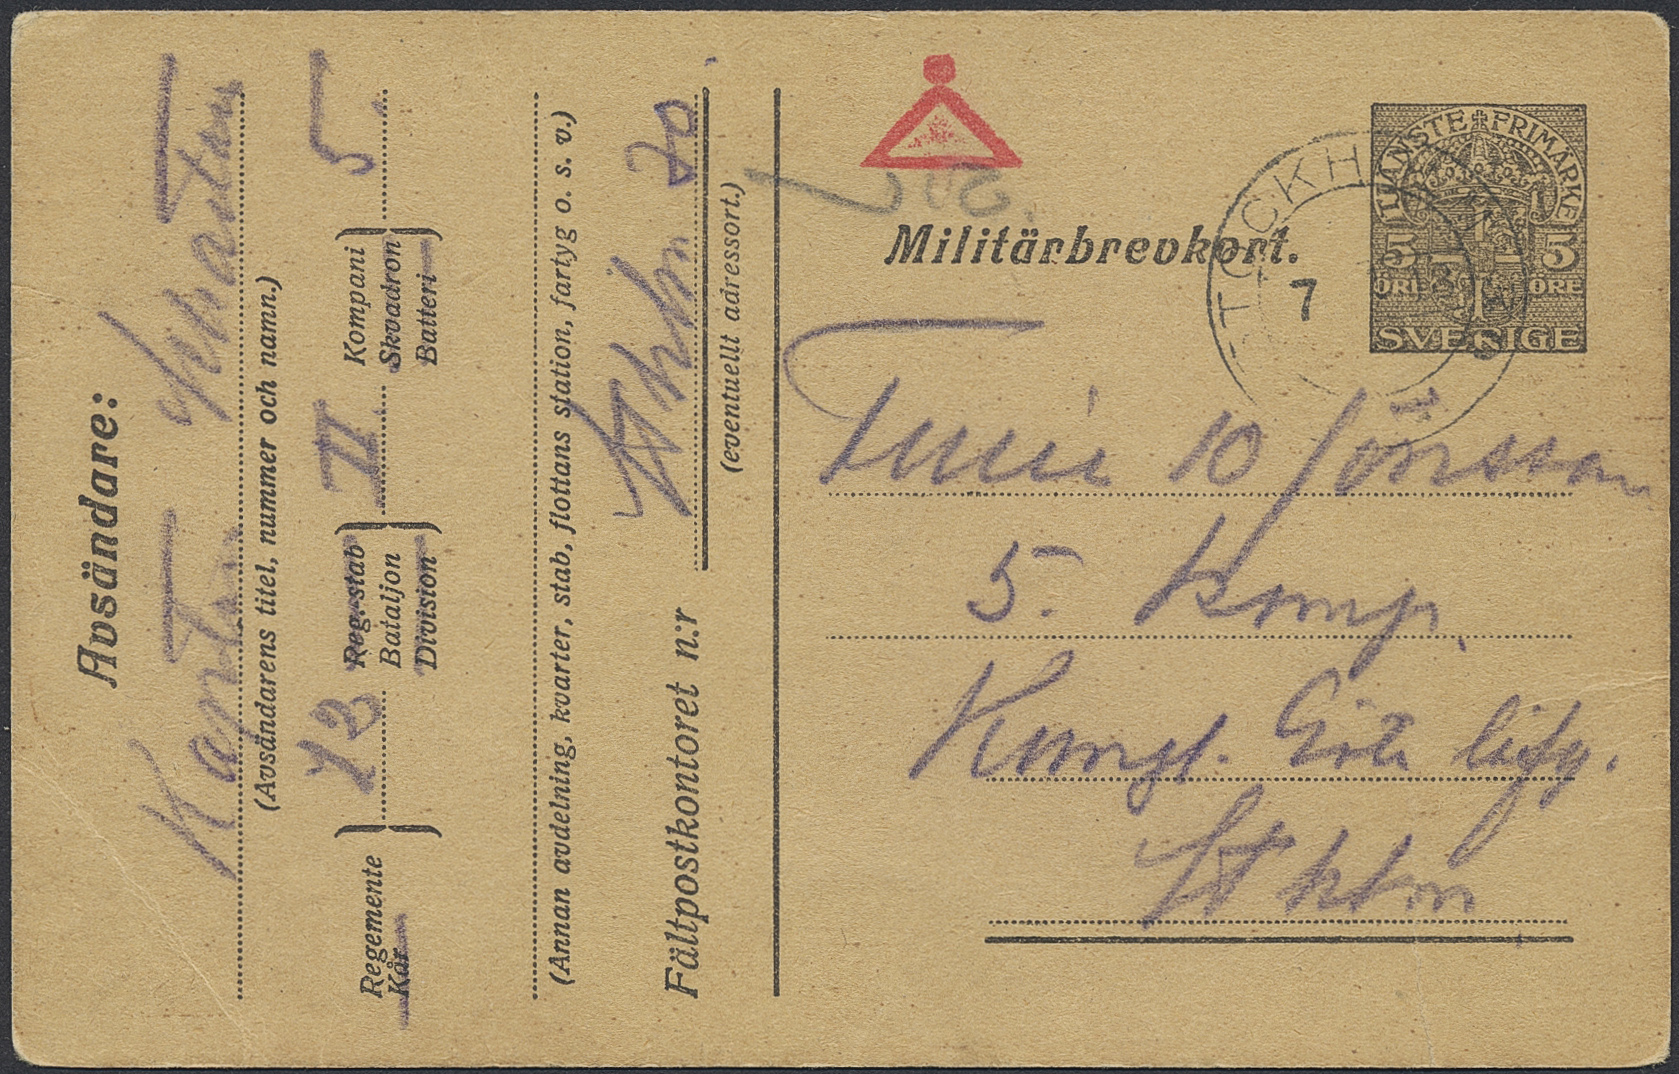 Avsändare:
Kapten
(Avsändarens titel, nummer och namn.)
Regemente
Kår
13
Reg. stab
Bataljon
Division
II
Kompani
Skvadron
Batteri
5.
(Annan avdelning, kvarter, stab, flottans station, fartyg o. s. v.)
Fältpostkontoret n:r
Sthlm 20
(eventuellt adressort.)
Militärbrevkort.
STOCKHOLM
7
TJÄNSTE FRIMÄRKE
5 5
ÖRE ÖRE
SVERIGE
10 Jonsson
5. Komp.
Kungl. Göta livg.
Sthlm